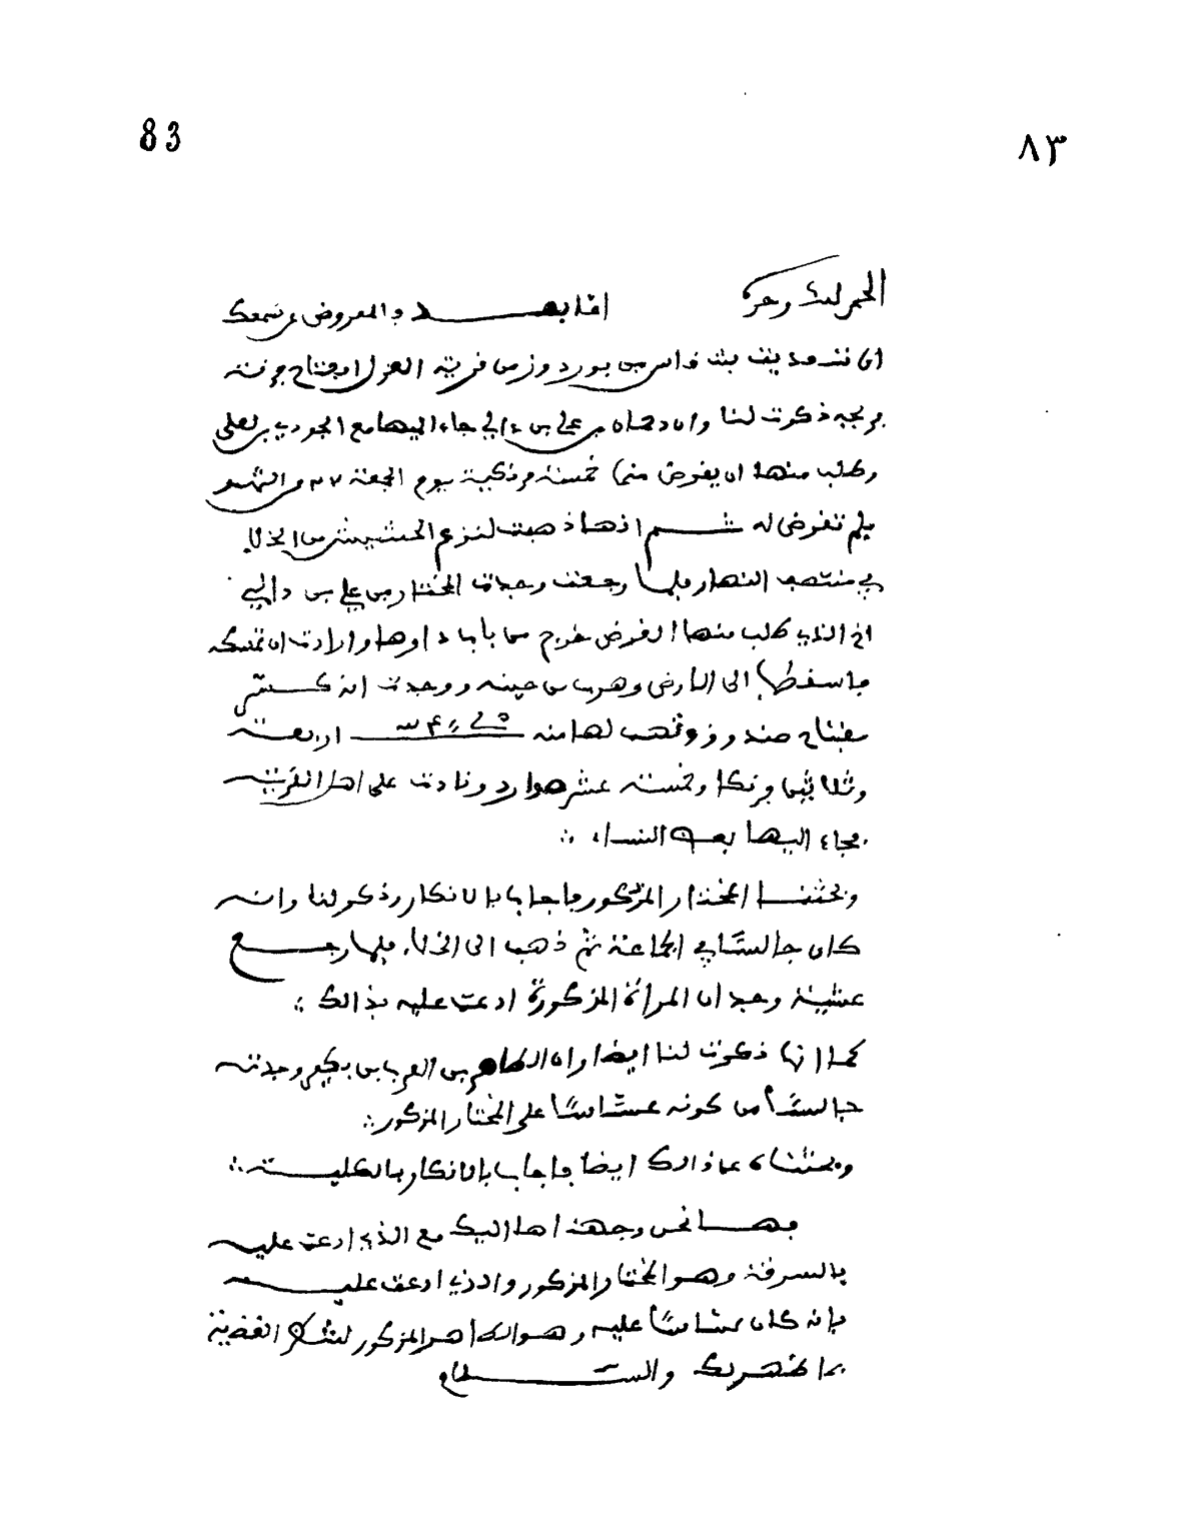 83
٨٣
الحمد لله وحده
اما بعد فالمعروض عن سمعك
ان
ذكرت لنا وان جاء اليها مع
وطلب منها ان يفرض منها خمسة يوم الجمعة ٢٧ من الشهر
فلم تفرض له ثم انها ذهبت لنزع الحشيش من الخلاء
في منتصف النهار فلما رجعت وجدت المختار بن علي بن دالي
الذي طلب منها الفرض خرج من باب دارها وارادت ان تمسكه
فاسقطها الى الارض وهرب من حينه ووجدت انه كسر
مفتاح صندوق ونهب لها منه اربعة
وثلاثين فرنكا وخمسة عشر ونادت على اهل القرية
فجاء اليها بعض النساء ∴
وبحثنا المختار المذكور فاجاب بالانكار وذكر لنا وانه
كان جالسا في الجماعة ثم ذهب الى الخلاء فلما رجع
عشية وجد ان المراة المذكورة ادعت عليه بذالك ∴
كما انها ذكرت لنا ايضا وان الطاهر بن العربي بن وجدته
جالسا من كونه عساسا على المختار المذكور ∴
وبحثناه عما ذالك ايضا فاجاب بالانكار بالكلية ∴
فها نحن وجهناها اليك مع الذي ادعت عليه
بالسرقة وهو المختار المذكور والذي ادعت عليه
بانه كان عساسا عليه وهو الطاهر المذكور لتنظر القضية
بما يظهر لك والسلام